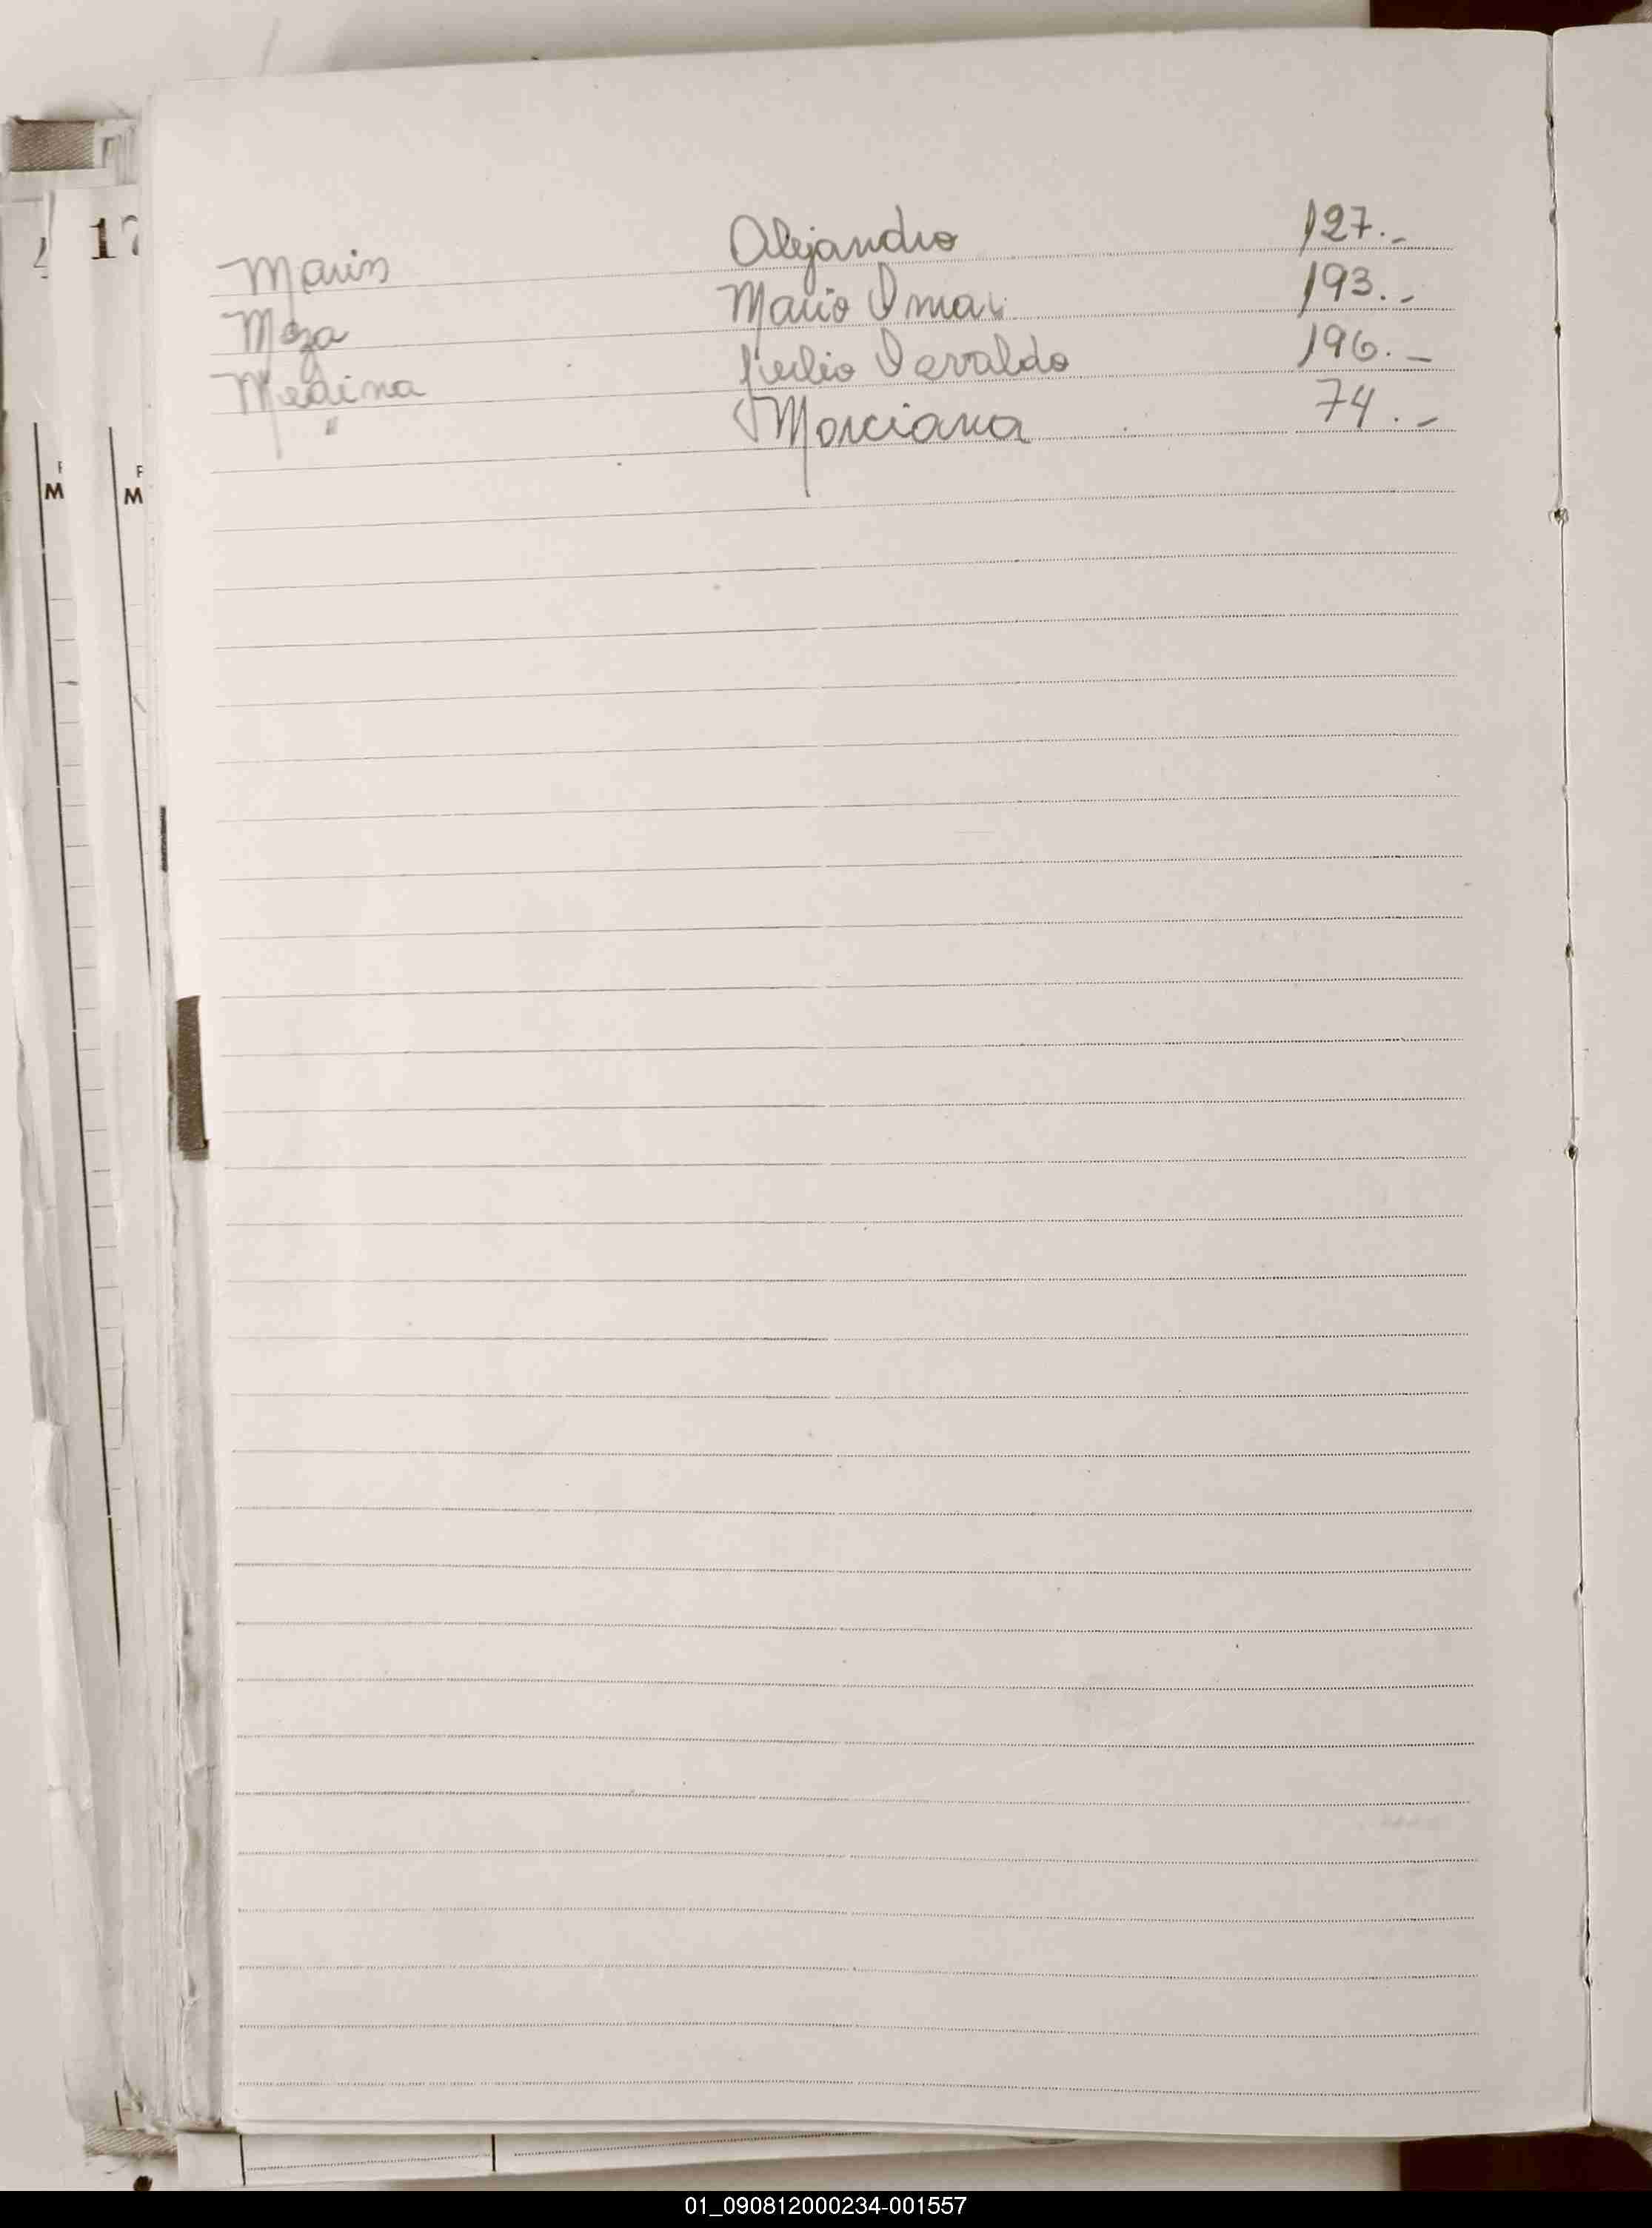 Marin Alejandro 127.-
Meza Mario Omar 193.-
Medina Julio Osvaldo 196.-
" Marciana 74.-
17
M M
01_090812000234-001557